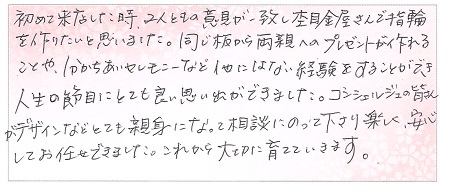 初めて来店した時、2人ともの意見が一致し杢目金屋さんで指輪
を作りたいと思いました。同じ板から両親へのプレゼントが作れる
ことや、分かちあいセレモニーなど他にはない経験をすることができ
人生の節目にとても良い思い出ができました。コンシェルジュの皆さん
がデザインなどとても親身になって相談にのって下さり楽しく、安心
してお任せできました。これから大切に育てていきます。